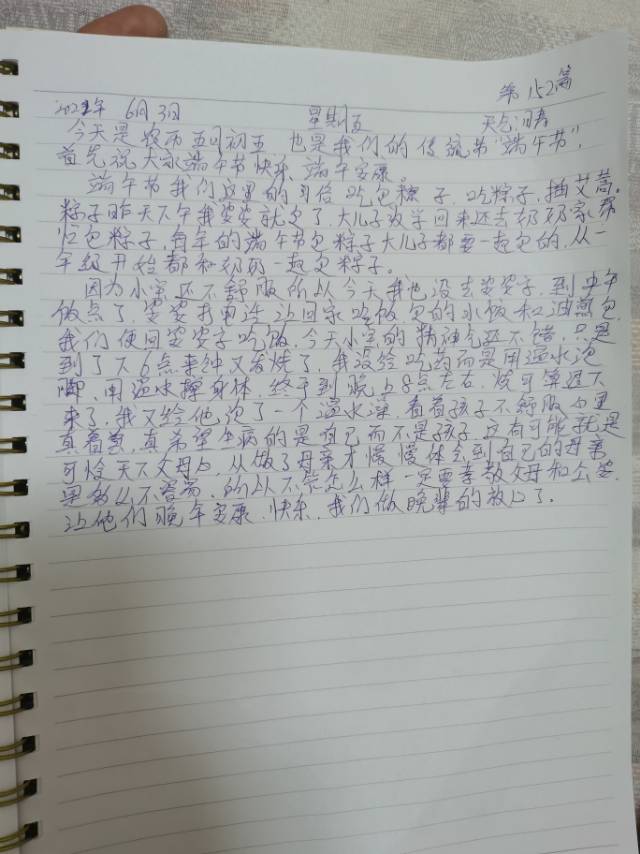 第152篇
2022年 6月3日 星期五 天气:晴
今天是农历五月初五,也是我们的传统节"端午节",
首先祝大家端午节快乐,端午安康。
端午节我们这里的习俗吃包粽子,吃粽子,插艾蒿。
粽子昨天下午我婆婆就包了,大儿子放学回来还去奶奶家帮
忙包粽子,每年的端午节包粽子大儿子都要一起包的,从一
年级开始都和奶奶一起包粽子。
因为小宝还不舒服所以今天我也没去婆婆子,到中午
饭点了,婆婆打电话让回家吃饭包的小饭和油煎包
我们便回婆婆子吃饭,今天小宝的精神气还不错,只是
到了下6点来钟又发烧了,我没给吃药而是用温水泡
脚,用温水擦身体,终于到晚上8点左右,烧可算退下
来了,我又给他泡了一个温水澡,看着孩子不舒服心里
真着急,真希望生病的是自己而不是孩子,这有可能就是
可怜天下父母心,从做了母亲才慢慢体会到自己的母亲
是多么不容易,所以不管怎么样一定要孝敬父母和公婆,
让他们晚年安康、快乐,我们做晚辈的放心了。